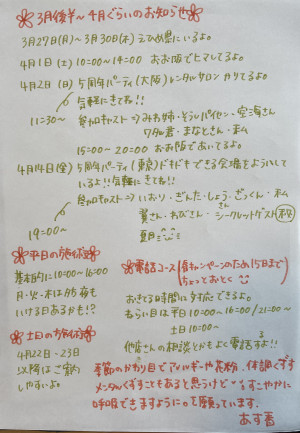 3月後半〜4月ぐらいのお知らせ
3月27日(月)〜3月30日(木) えひめ県にいるよ。
4月1日(土) 10:00〜14:00 おお阪でヒマしてるよ。
4月2日(日) 5周年パーティ(大阪)レンタルサロン かりてるよ。
気軽にきてね!!
11:30〜
参加キャスト⇒みお姉・そうしパイセン・空海さん
ワタ君・まなとさん・私
15:00〜20:00 おお阪であいてるよ。
4月14日(金) 5周年パーティ(東京)ドキドキできる会場をようい して
いるよ!!気軽にきてね!!
参加キャスト⇒いおり・ぎんた・しょう・ざっくん・私
翼さん・わびさん・シークレットゲスト
19:00〜
平日の施術
基本的に10:00〜16:00
月・火・木は夕方夜も
いける日あるかも!?
土日の施術
4月22日・23日
以降はご案内
しやすいよ。
電話コース(値キャンペーンのため15日まで)
ちょっとおとく
おきてる時間に対応できるよ。
ねらい目は平日10:00〜16:00/21:00〜
土日10:00〜
他店さんの相談とかもよく電話するよ!!
季節のかわり目でアレルギーや花粉、体調くずす
メンタルくずすこともあると思うけどすこやかに
呼吸できますように。を願っています。
あす香